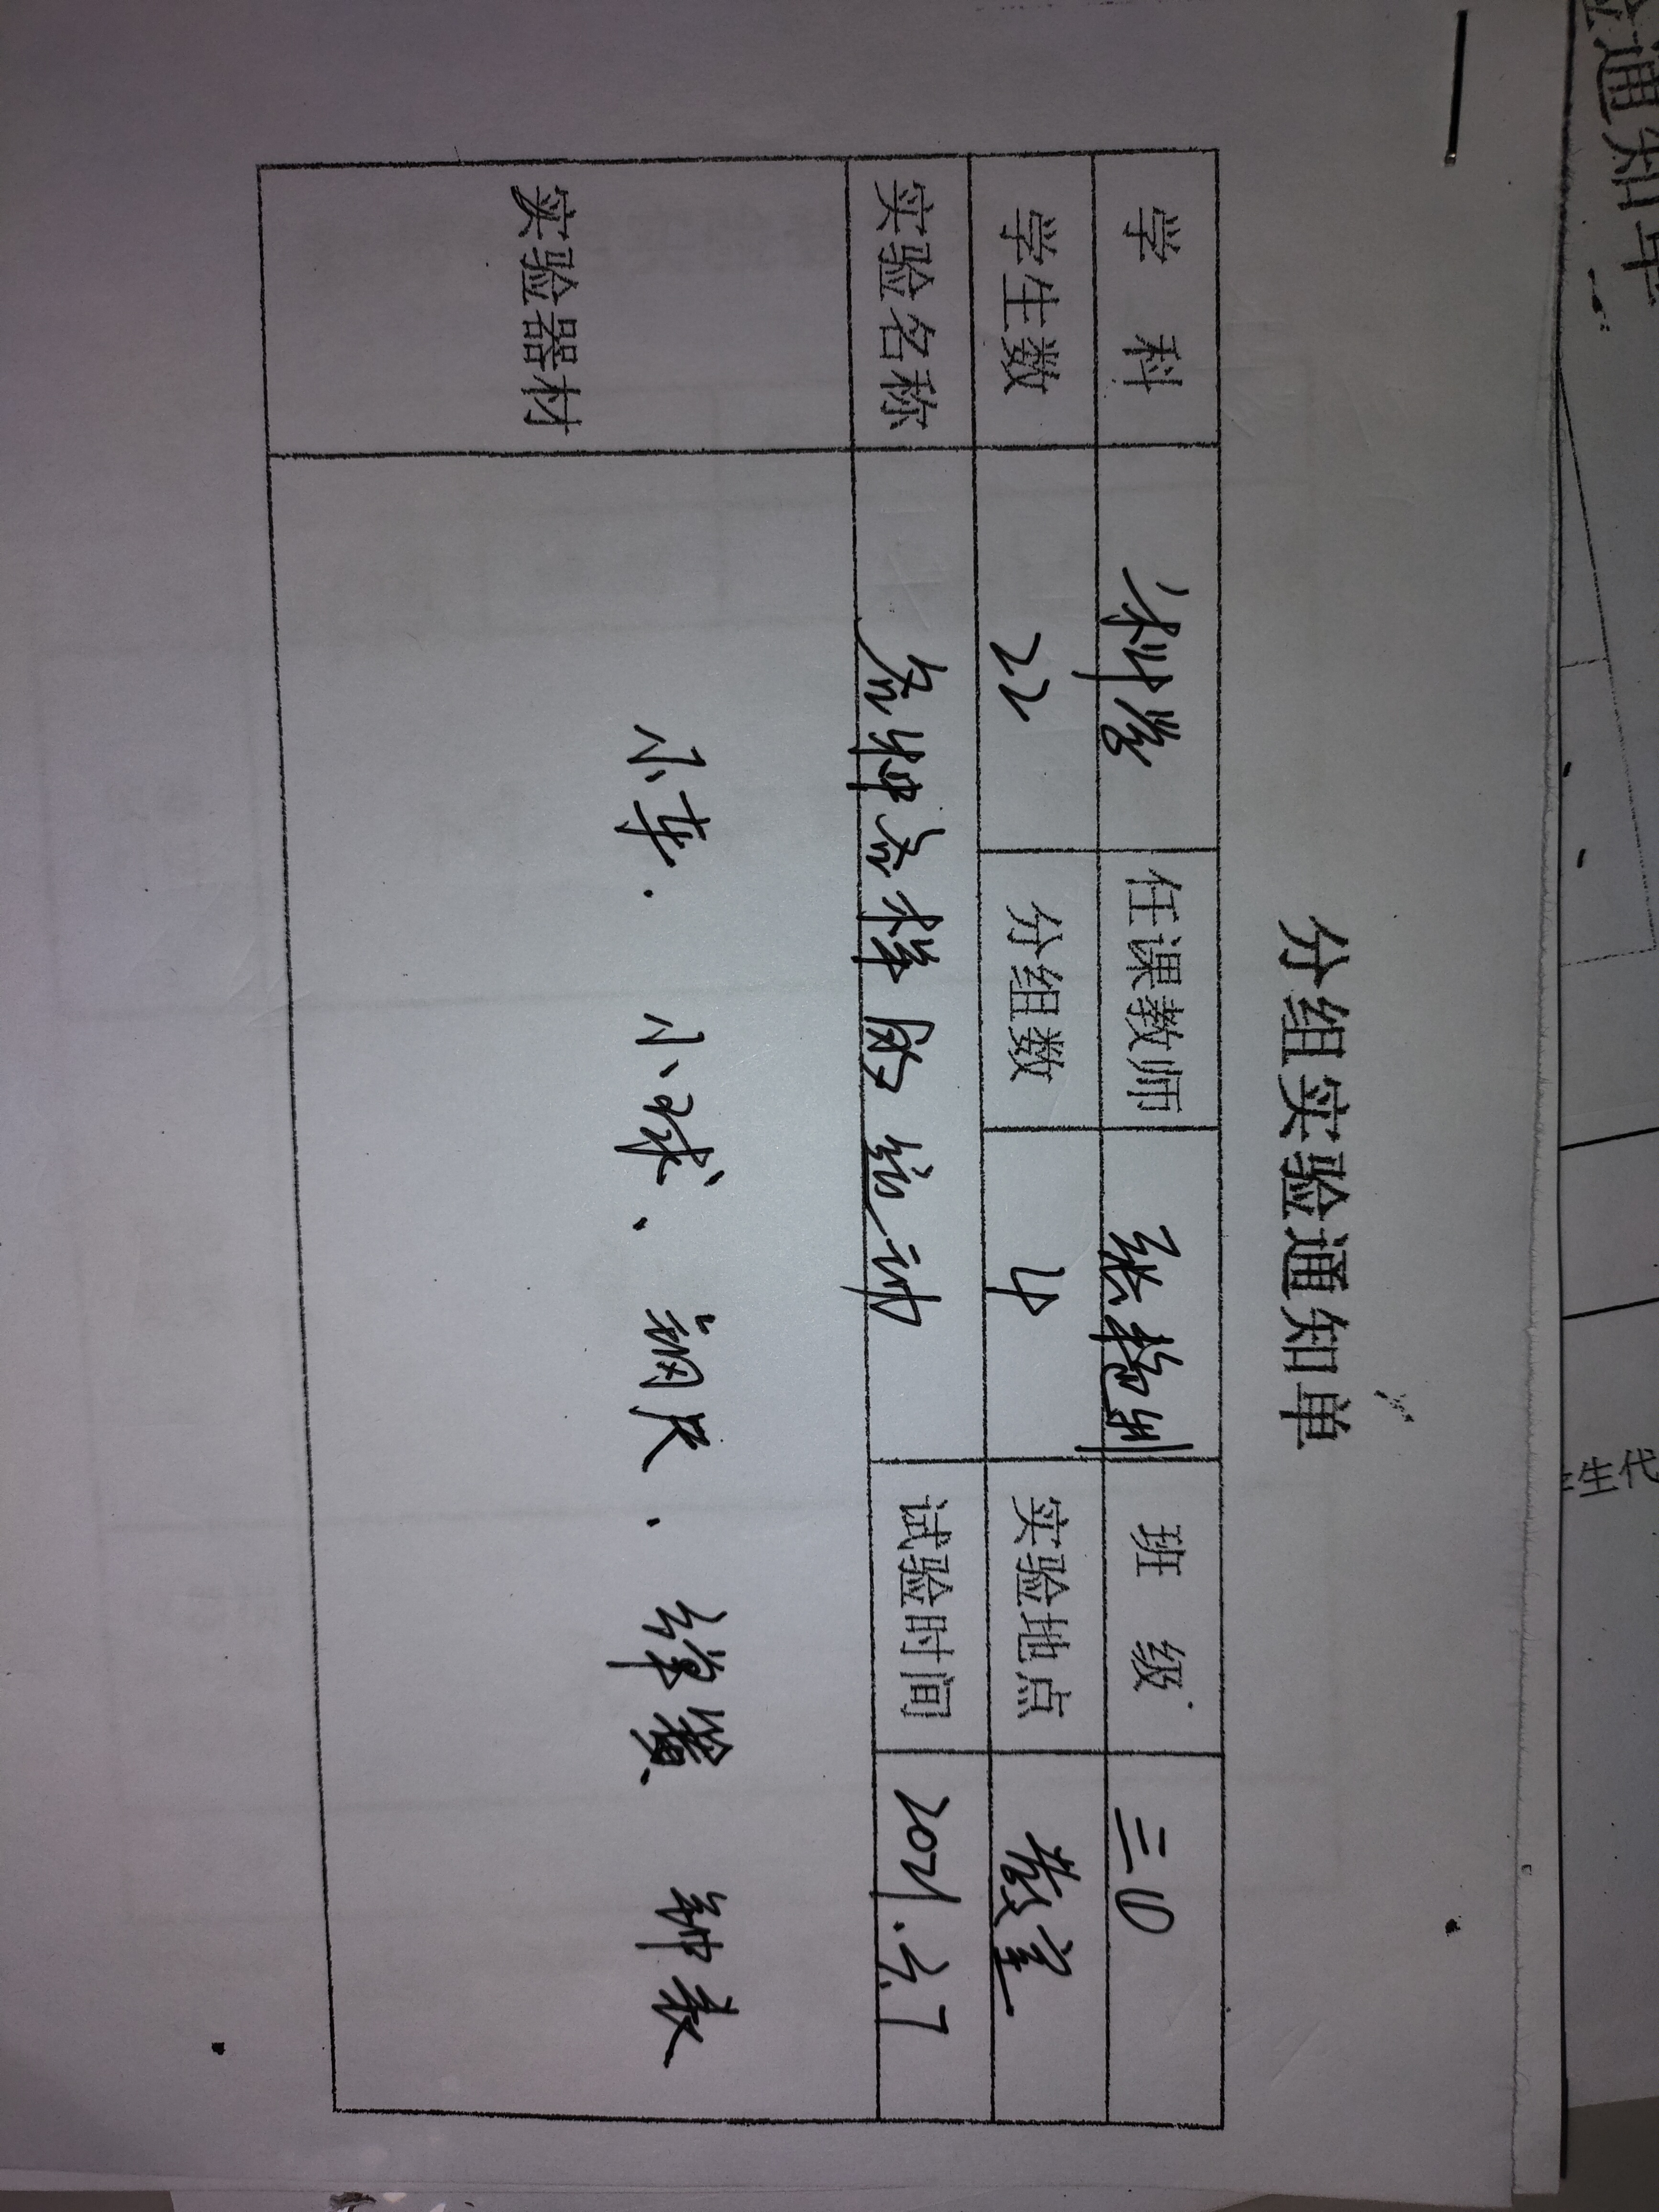 分组实验通知单
学 科 科学 任课教师 张艳 班 级 三(1)
学生数 22 分组数 4 实验地点 教室
实验名称 各种各样的运动 试验时间 2021.3.7
实验器材 小车、小球、钢尺、弹簧 钟表
验通知单
生代